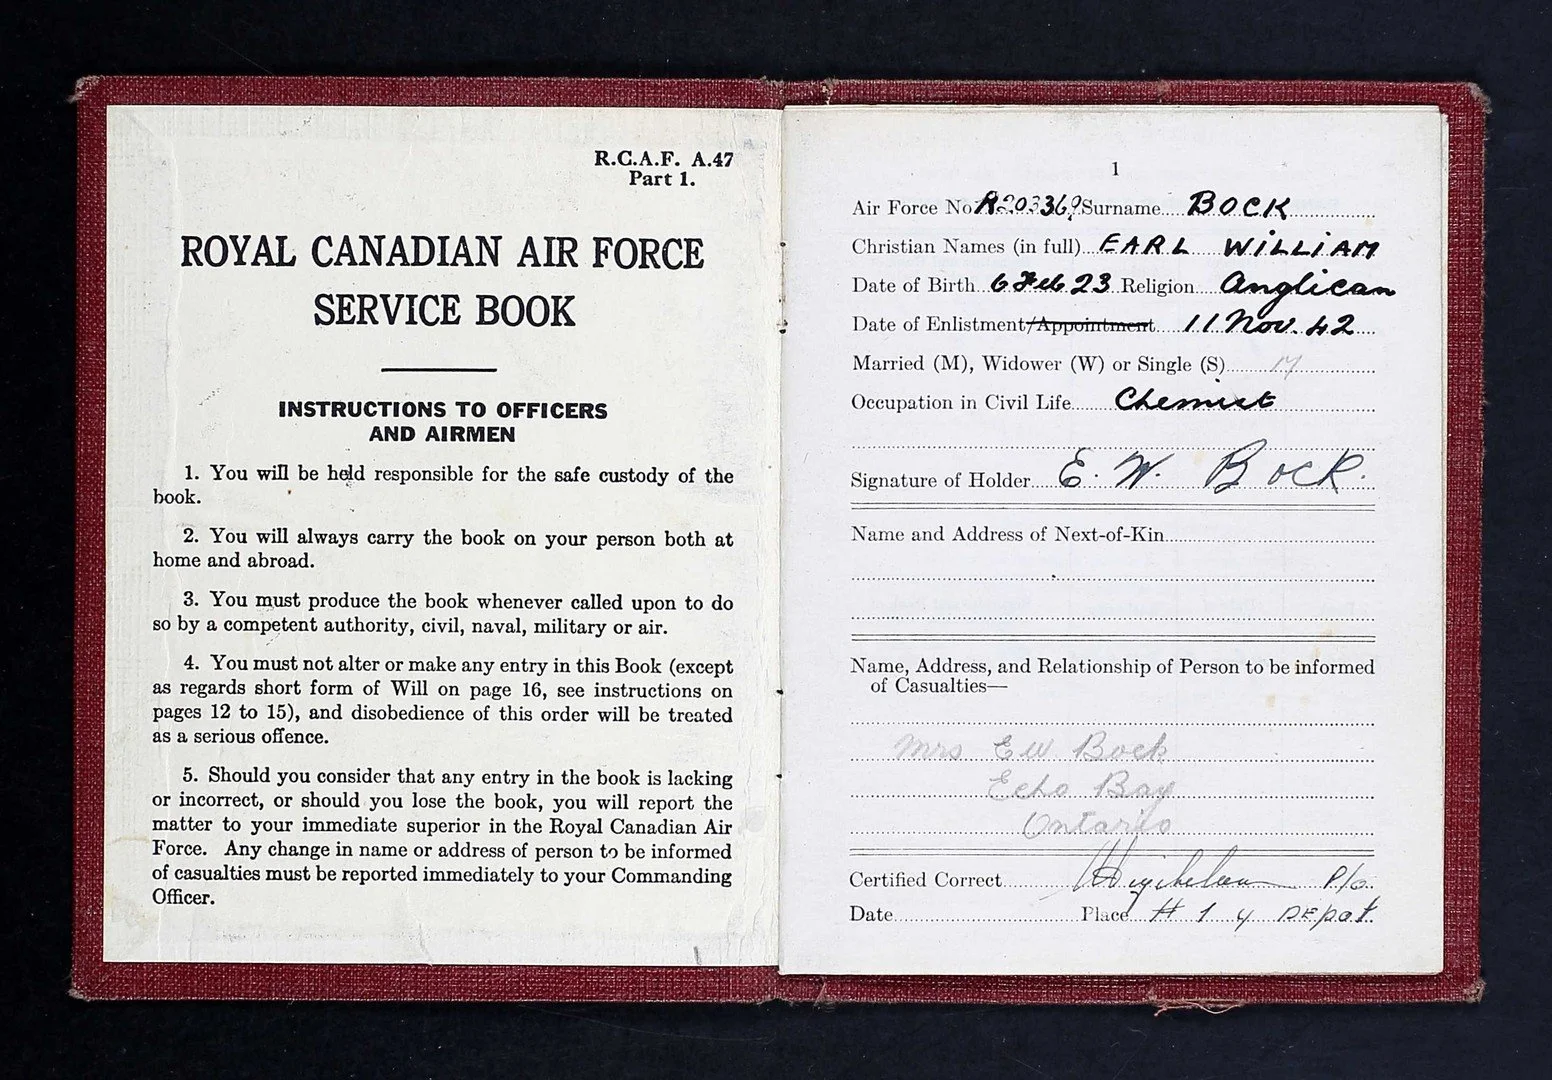 R.C.A.F. A.47
Part 1.
ROYAL CANADIAN AIR FORCE
SERVICE BOOK
INSTRUCTIONS TO OFFICERS
AND AIRMEN
1. You will be held responsible for the safe custody of the
book.
2. You will always carry the book on your person both at
home and abroad.
3. You must produce the book whenever called upon to do
so by a competent authority, civil, naval, military or air.
4. You must not alter or make any entry in this Book (except
as regards short form of Will on page 16, see instructions on
pages 12 to 15), and disobedience of this order will be treated
as a serious offence.
5. Should you consider that any entry in the book is lacking
or incorrect, or should you lose the book, you will report the
matter to your immediate superior in the Royal Canadian Air
Force. Any change in name or address of person to be informed
of casualties must be reported immediately to your Commanding
Officer.
1
Air Force No. R203369 Surname BOCK
Christian Names (in full) EARL WILLIAM
Date of Birth 6 Feb 23 Religion Anglican
Date of Enlistment/Appointment 11 Nov. 42
Married (M), Widower (W) or Single (S) M
Occupation in Civil Life Chemist
Signature of Holder E. W. Bock.
Name and Address of Next-of-Kin
Name, Address, and Relationship of Person to be informed
of Casualties—
Mrs E W Bock
Echo Bay
Ontario
Certified Correct P/O.
Date Place # 1 Y Depot.